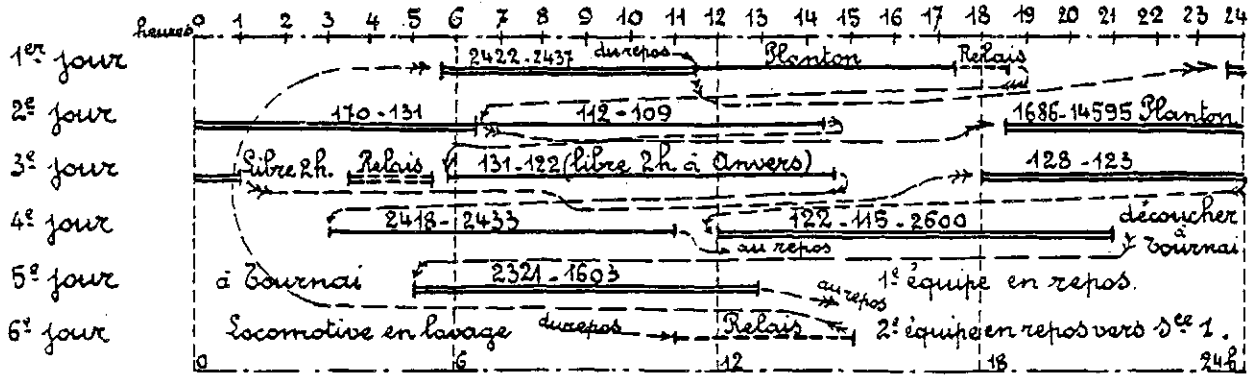 heures 0 1 2 3 4 5 6 7 8 9 10 11 12 13 14 15 16 17 18 19 20 21 22 23 24
1er jour 2422-2437 du repos Planton Relais
2e jour 170-131 112-109 1686-14595 Planton
3e jour Libre 2h. Relais 131-122 (libre 2h à Anvers) 128-123
4e jour 2418-2433 au repos 122-115-2600 découcher à Tournai
5e jour à Tournai 2321-1603 au repos 1e équipe en repos.
6e jour Locomotive en lavage du repos Relais 2e équipe en repos vers sce 1.
0 6 12 18 24h